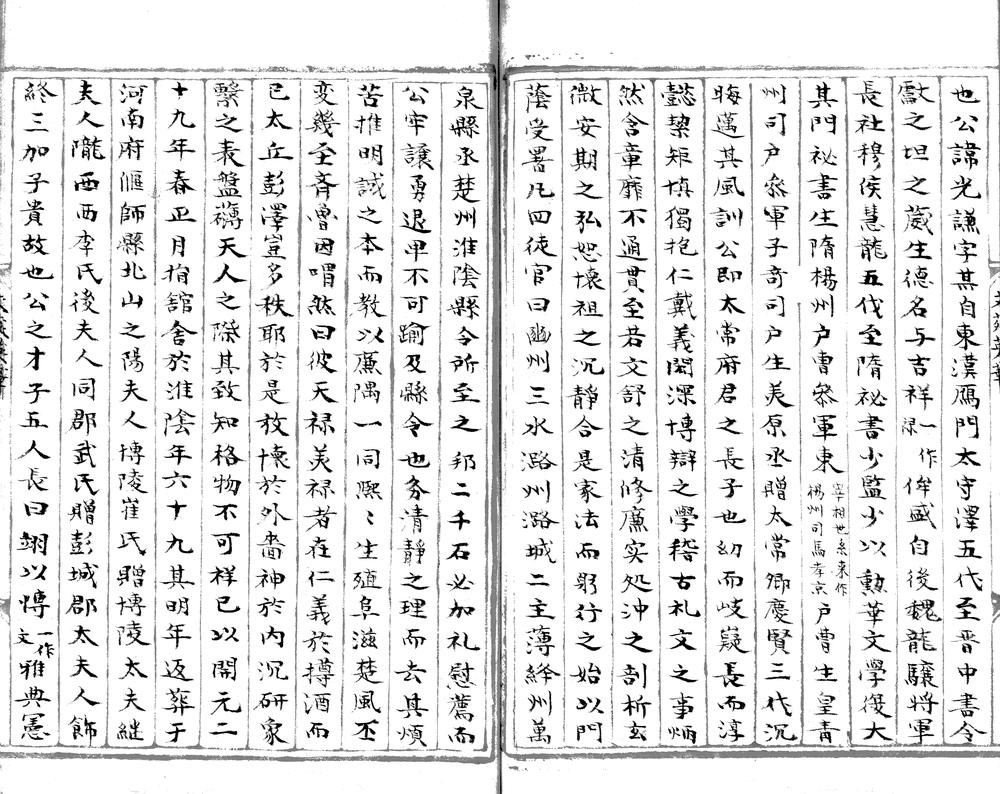 也公諱光謙字某自東漢鴈門太守澤五代至晉中書令
獻之坦之葳生德名与吉祥一作禄侔盛自後魏龍驤將軍
長社穆侯慧龍五代至隋祕書少監少以勲華文學復大
其門祕書生隋楊州户曹叅軍東宰相世系東作楊州司馬孝京户曹生皇青
州司户叅軍子奇司户生美原丞贈太常卿慶賢三代沉
晦邁其風訓公即太常府君之長子也幼而岐嶷長而淳
懿挈矩填獨抱仁戴義閎深博辯之學稽古礼文之事炳
然含章靡不通貫至若文舒之清修廉实処沖之剖析玄
微安期之弘恕懷祖之沉靜合是家法而躬行之始以門
蔭受署凡四徒官曰豳州三水潞州潞城二主薄絳州萬
泉縣丞楚州淮陰縣令所至之邦二千石必加礼慰薦而
公牢讓勇退甲不可踰及縣令也务清靜之理而去其煩
苦推明誠之本而教以廉隅一同熙〻生殖阜滋楚風丕
变幾至斉魯因喟然曰彼天禄美禄者在仁義於樽酒而
已太丘彭澤豈多秩耶於是放懷於外嗇神於内沉研象
繫之表盤礴天人之際其致知格物不可祥已以開元二
十九年春正月捐舘舍於淮陰年六十九其明年返葬于
河南府偃師縣北山之陽夫人博陵崔氏贈博陵太夫継
夫人隴西西李氏後夫人同郡武氏贈彭城郡太夫人飾
終三加子貴故也公之才子五人長曰翊以慱一作文雅典憲